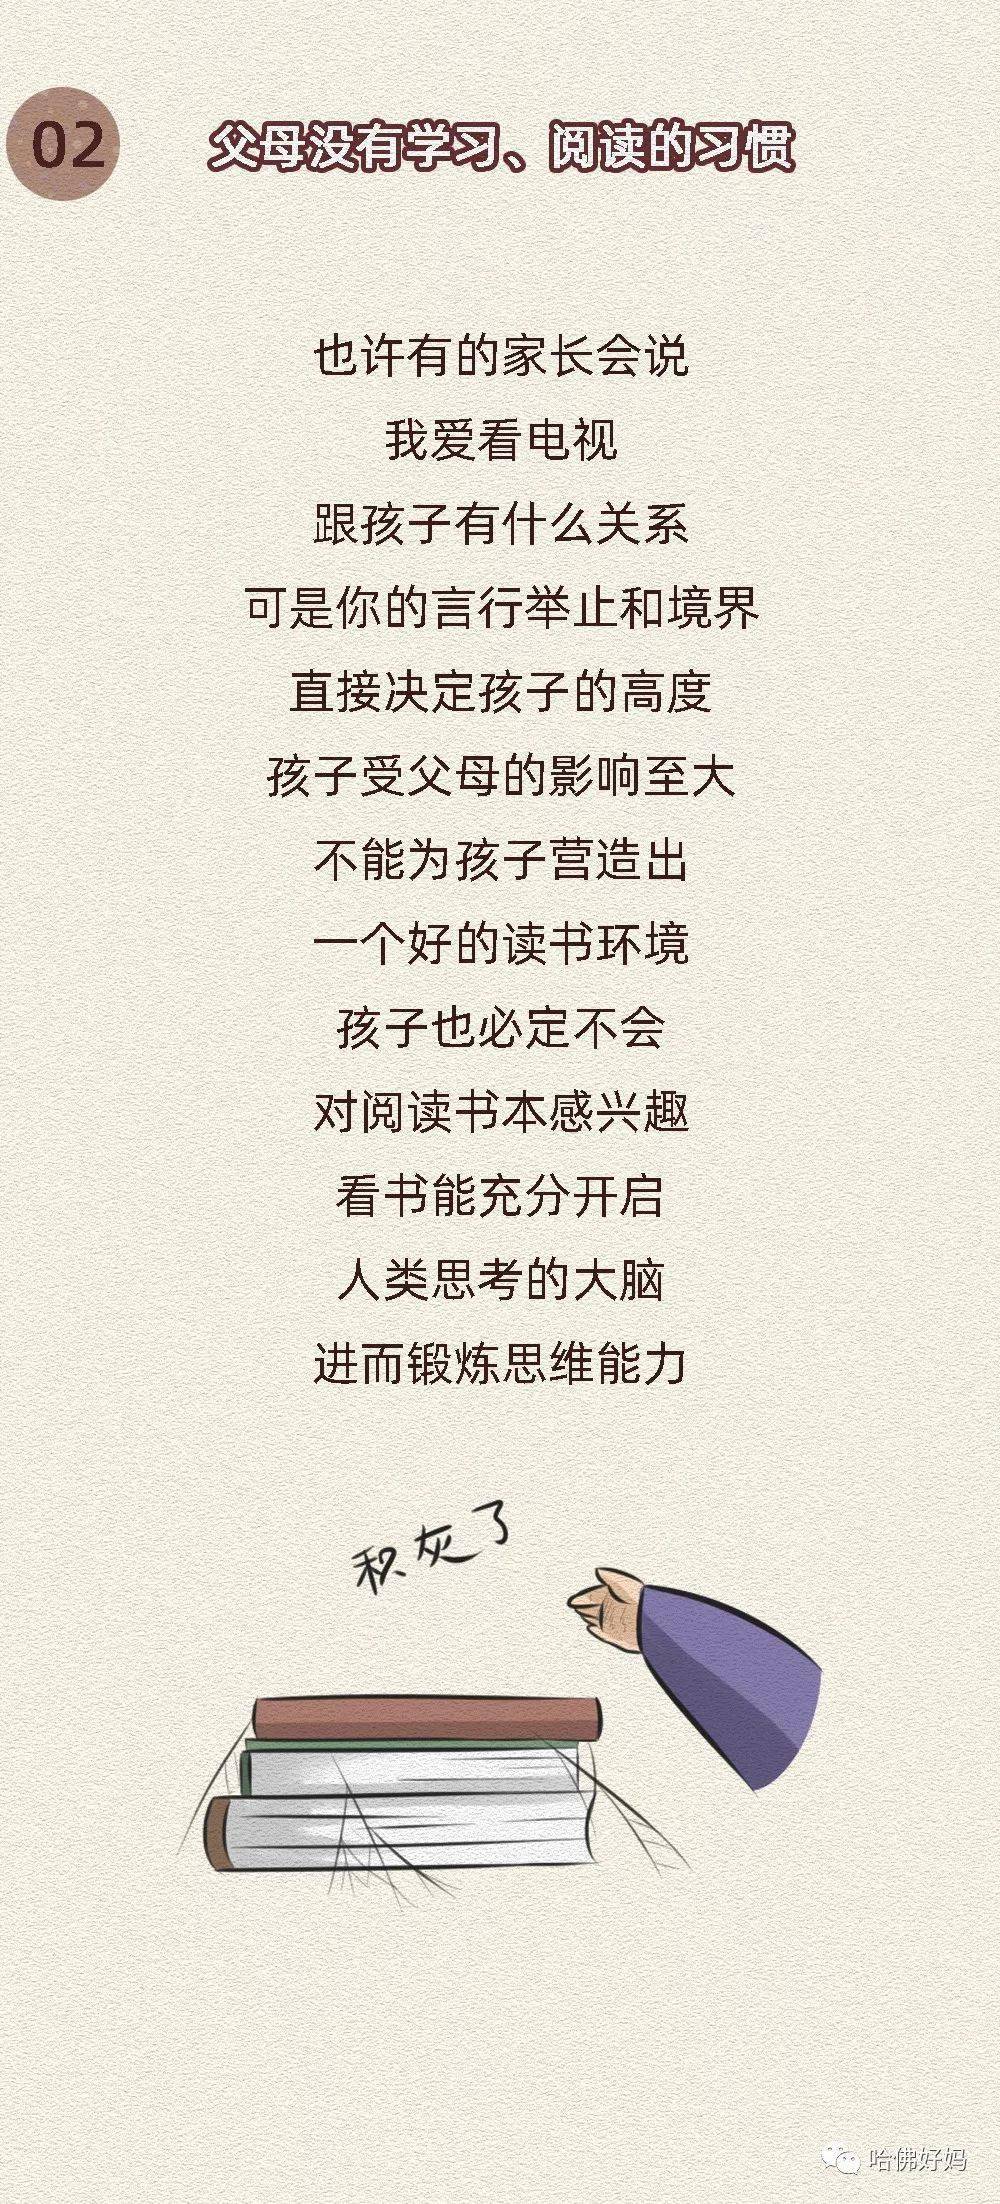 02
父母没有学习、阅读的习惯
也许有的家长会说
我爱看电视
跟孩子有什么关系
可是你的言行举止和境界
直接决定孩子的高度
孩子受父母的影响至大
不能为孩子营造出
一个好的读书环境
孩子也必定不会
对阅读书本感兴趣
看书能充分开启
人类思考的大脑
进而锻炼思维能力
积灰了
哈佛好妈